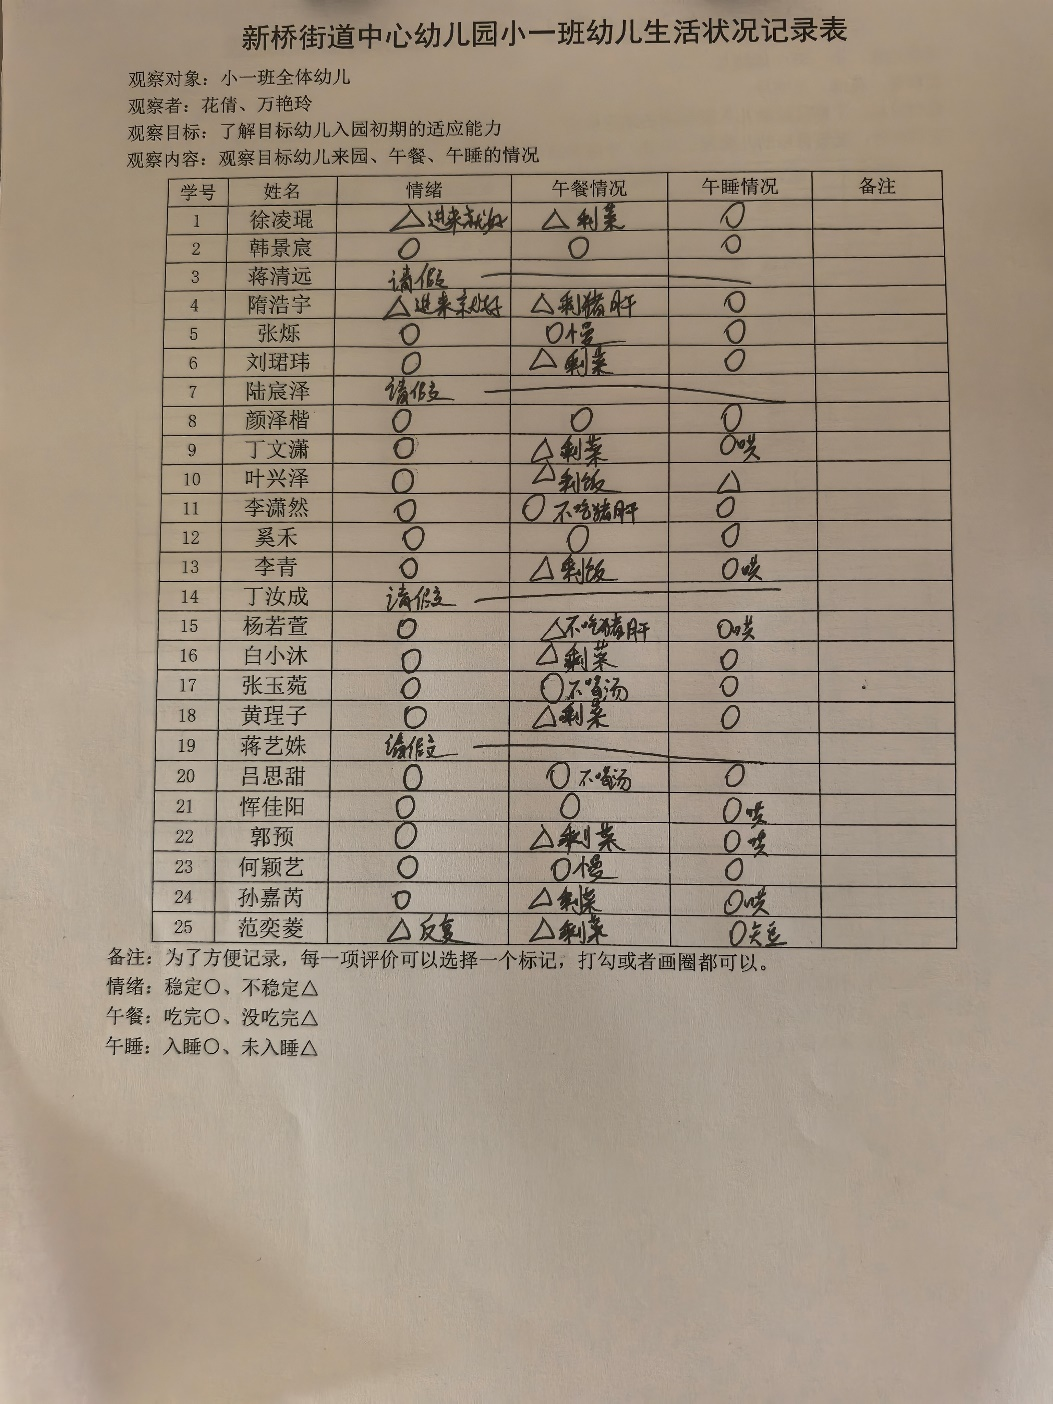 新桥街道中心幼儿园小一班幼儿生活状况记录表
观察对象：小一班全体幼儿
观察者：花倩、万艳玲
观察目标：了解目标幼儿入园初期的适应能力
观察内容：观察目标幼儿来园、午餐、午睡的情况
学号 姓名 情绪 午餐情况 午睡情况 备注
1 徐凌琨 △进来就好 △ 剩菜 ○
2 韩景宸 ○ ○ ○
3 蒋清远 请假
4 隋浩宇 △进来就好 △剩猪肝 ○
5 张烁 ○ ○慢 ○
6 刘珺玮 ○ △ 剩菜 ○
7 陆宸泽 请假
8 颜泽楷 ○ ○ ○
9 丁文潇 ○ △剩菜 ○哄
10 叶兴泽 ○ △剩饭 △
11 李潇然 ○ ○ 不吃猪肝 ○
12 奚禾 ○ ○ ○
13 李青 ○ △剩饭 ○哄
14 丁汝成 请假
15 杨若萱 ○ △不吃猪肝 ○哄
16 白小沐 ○ △剩菜 ○
17 张玉菀 ○ ○不喝汤 ○
18 黄珵子 ○ △剩菜 ○
19 蒋艺姝 请假
20 吕思甜 ○ ○ 不喝汤 ○
21 恽佳阳 ○ ○ ○哄
22 郭预 ○ △剩菜 ○哄
23 何颖艺 ○ ○慢 ○
24 孙嘉芮 ○ △剩菜 ○哄
25 范奕菱 △反复 △剩菜 ○
备注：为了方便记录，每一项评价可以选择一个标记，打勾或者画圈都可以。
情绪：稳定○、不稳定△
午餐：吃完○、没吃完△
午睡：入睡○、未入睡△